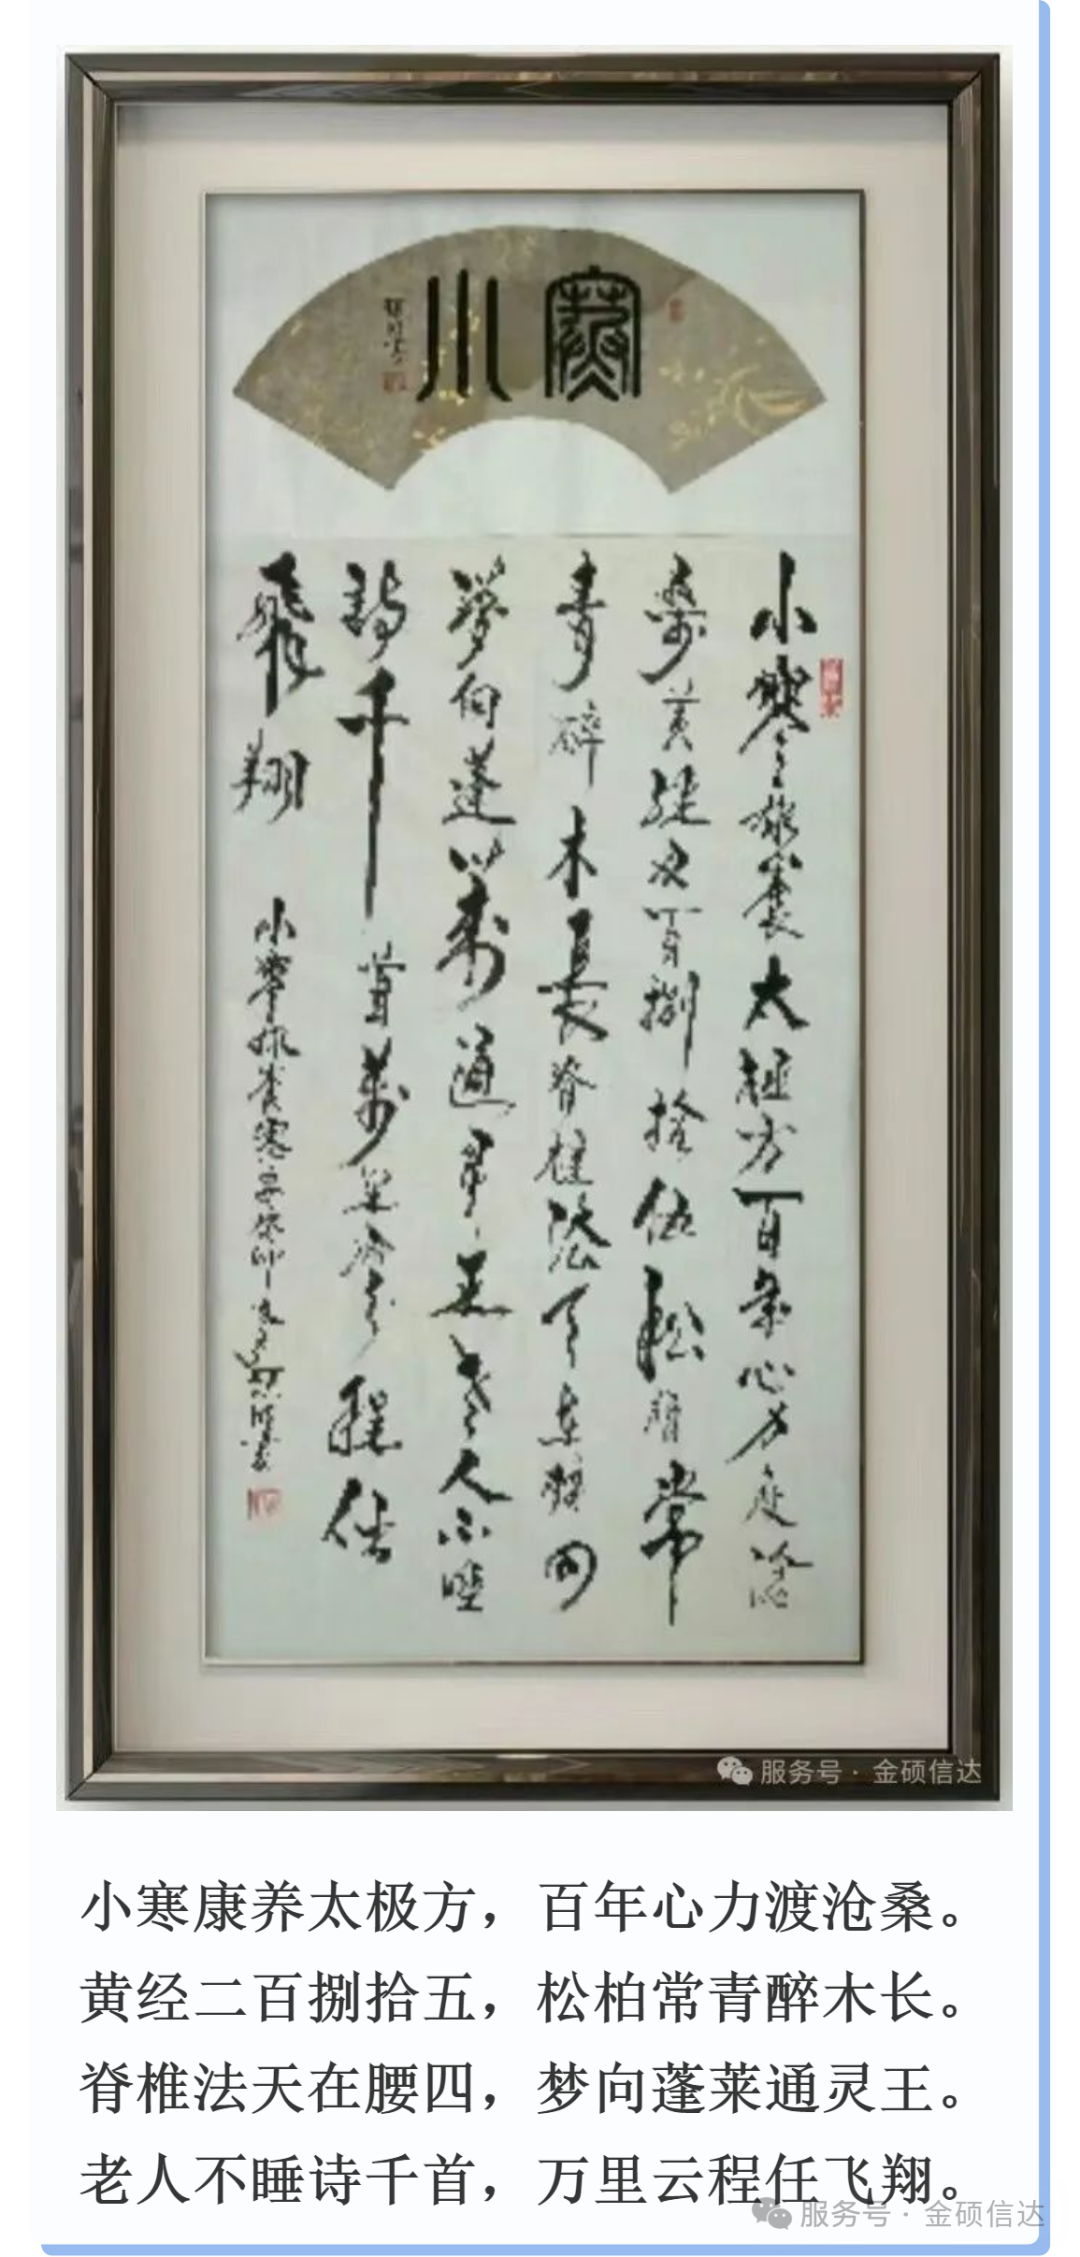 寒小
小寒康养太极方百年心力渡沧
桑黄经二百捌拾伍松柏常
青醉木长脊椎法天在腰四
梦向蓬莱通灵王老人不睡
诗千首万里云程任
飞翔
服务号 · 金硕信达
小寒康养太极方，百年心力渡沧桑。
黄经二百捌拾五，松柏常青醉木长。
脊椎法天在腰四，梦向蓬莱通灵王。
老人不睡诗千首，万里云程任飞翔。
服务号 · 金硕信达